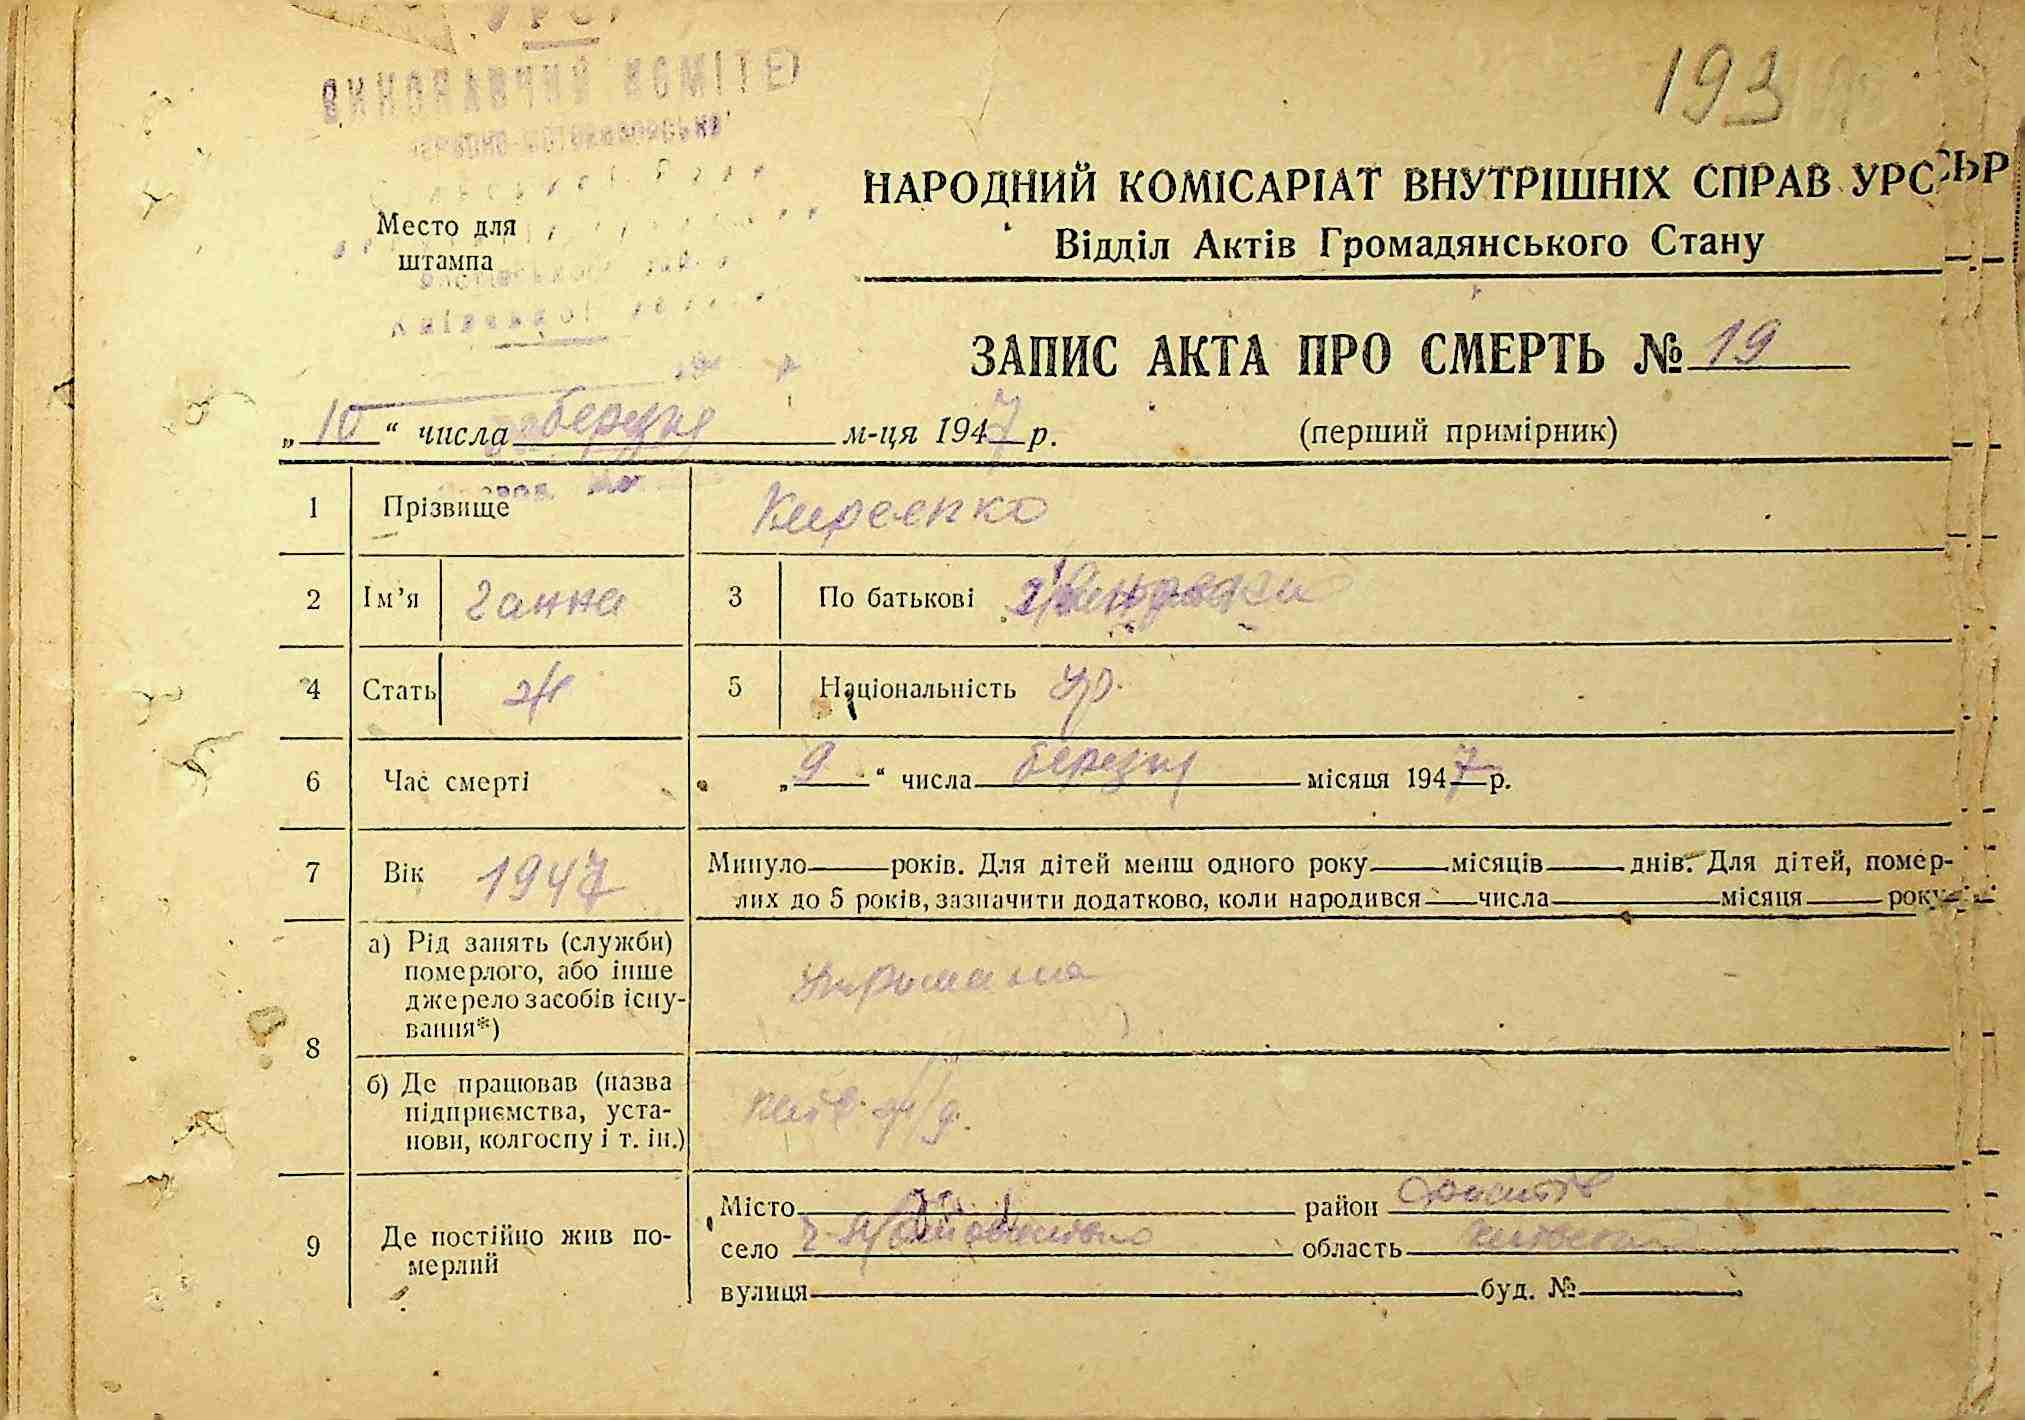 ВИКОНАВЧИЙ КОМІТЕ
193
НАРОДНИЙ КОМІСАРІАТ ВНУТРІШНІХ СПРАВ УРСР
Відділ Актів Громадянського Стану
Место для
штампа
ЗАПИС АКТА ПРО СМЕРТЬ № 19
„10“ числа березня м-ця 1947 р.
(перший примірник)
1 Прізвище Киреєнко
2 Ім’я Ганна 3 По батькові
4 Стать ж 5 Національність укр.
6 Час смерті „9“ числа березня місяця 1947 р.
7 Вік 1947 Минуло років. Для дітей менш одного року місяців днів. Для дітей, помер-
лих до 5 років, зазначити додатково, коли народився числа місяця року
8 а) Рід занять (служби)
померлого, або інше
джерело засобів існу-
вання*)
б) Де працював (назва
підприємства, уста-
нови, колгоспу і т. ін.)
9 Де постійно жив по-
мерлий
Місто район
село область
вулиця буд. №